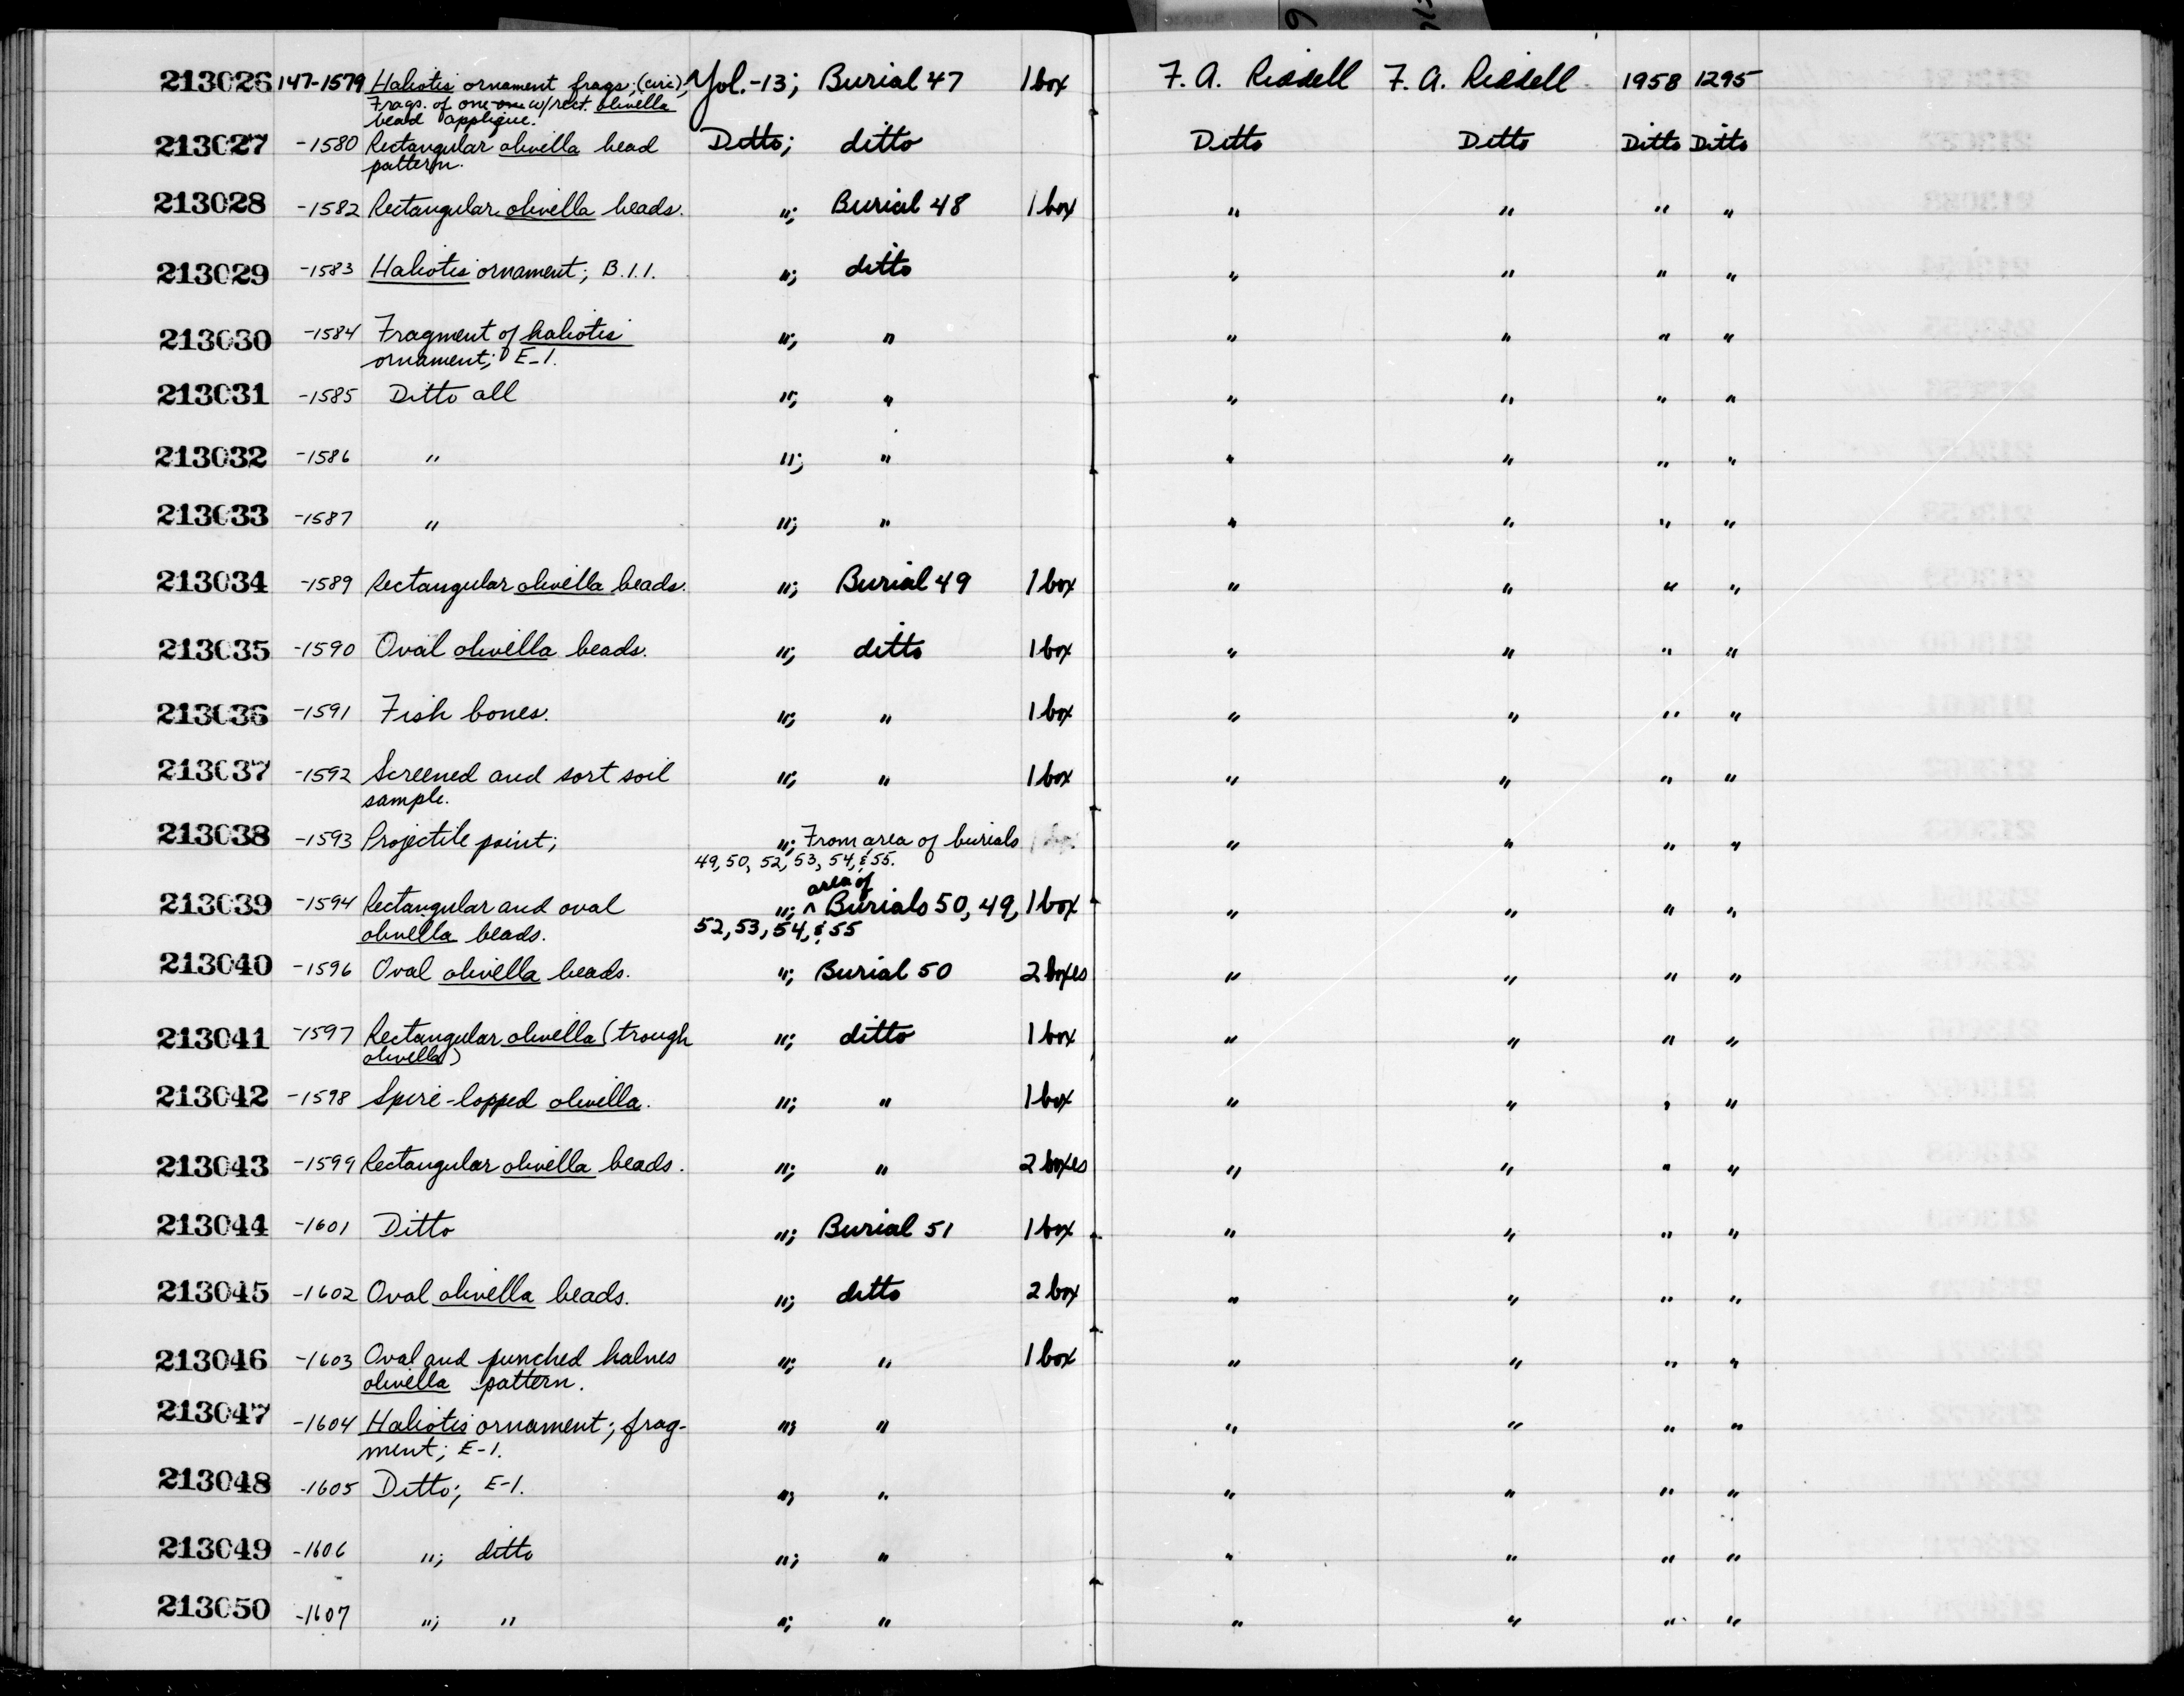 213026 147-1579 Haliotis ornament frags; (circ); Yol.-13; Burial 47 1 box F. A. Riddell F. A. Riddell 1958 1295
Frags. of one w/rect. olivella
bead applique.
213027 -1580 Rectangular olivella bead Ditto; ditto Ditto Ditto Ditto Ditto
pattern.
213028 -1582 Rectangular olivella beads. "; Burial 48 1 box " " " "
213029 -1583 Haliotis ornament; B.1.1. "; ditto " " " "
213030 -1584 Fragment of haliotis "; " " " " "
ornament; E-1.
213031 -1585 Ditto all "; " " " " "
213032 -1586 " "; " " " " "
213033 -1587 " "; " " " " "
213034 -1589 Rectangular olivella beads. "; Burial 49 1 box " " " "
213035 -1590 Oval olivella beads. "; ditto 1 box " " " "
213036 -1591 Fish bones. "; " 1 box " " " "
213037 -1592 Screened and sort soil "; " 1 box " " " "
sample.
213038 -1593 Projectile point; "; From area of burials " " " "
49, 50, 52, 53, 54, & 55.
area of
213039 -1594 Rectangular and oval "; ^ Burials 50, 49, 1 box " " " "
olivella beads. 52, 53, 54, & 55
213040 -1596 Oval olivella beads. "; Burial 50 2 boxes " " " "
213041 -1597 Rectangular olivella (trough "; ditto 1 box " " " "
olivella)
213042 -1598 Spire-lopped olivella. "; " 1 box " " " "
213043 -1599 Rectangular olivella beads. "; " 2 boxes " " " "
213044 -1601 Ditto "; Burial 51 1 box " " " "
213045 -1602 Oval olivella beads. "; ditto 2 box " " " "
213046 -1603 Oval and punched halves "; " 1 box " " " "
olivella pattern.
213047 -1604 Haliotis ornament; frag- "; " " " " "
ment; E-1.
213048 -1605 Ditto; E-1. "; " " " " "
213049 -1606 "; ditto "; " " " " "
213050 -1607 "; " "; " " " " "